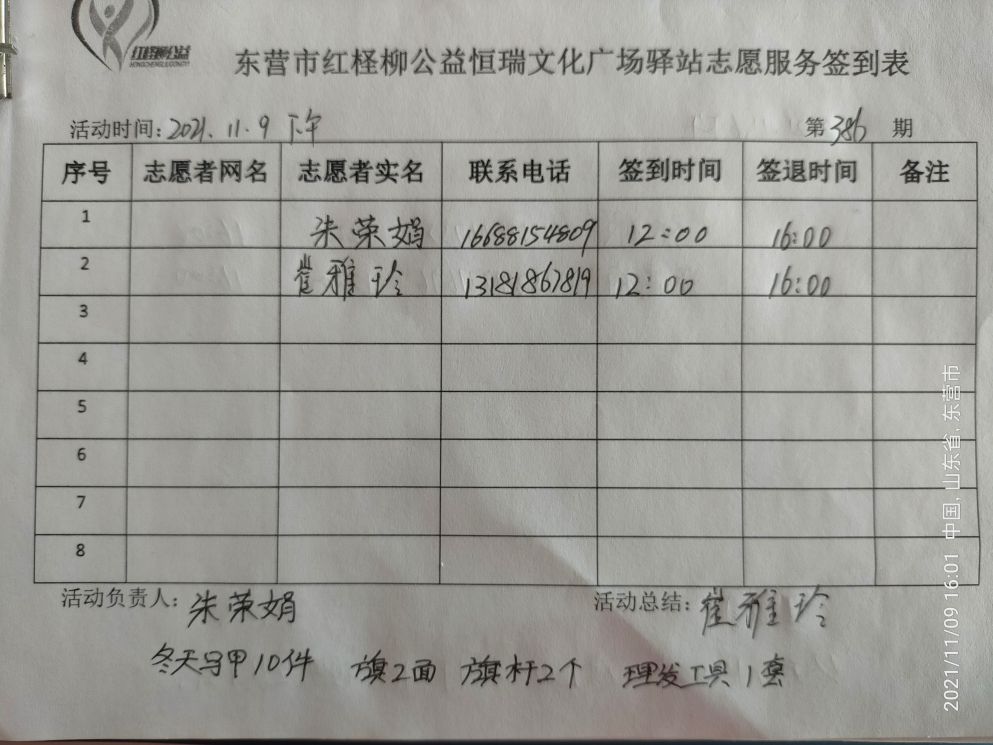 红柽柳公益
HONGCHENGLIUGONGYI
东营市红柽柳公益恒瑞文化广场驿站志愿服务签到表
活动时间:2021.11.9 下午 第386期
序号 志愿者网名 志愿者实名 联系电话 签到时间 签退时间 备注
1 朱荣娟 16688154809 12:00 16:00
2 崔雅玲 13181867819 12:00 16:00
3
4
5
6
7
8
活动负责人:朱荣娟 活动总结:崔雅玲
冬天马甲10件 旗2面 旗杆2个 理发工具1套
2021/11/09 16:01 中国,山东省,东营市